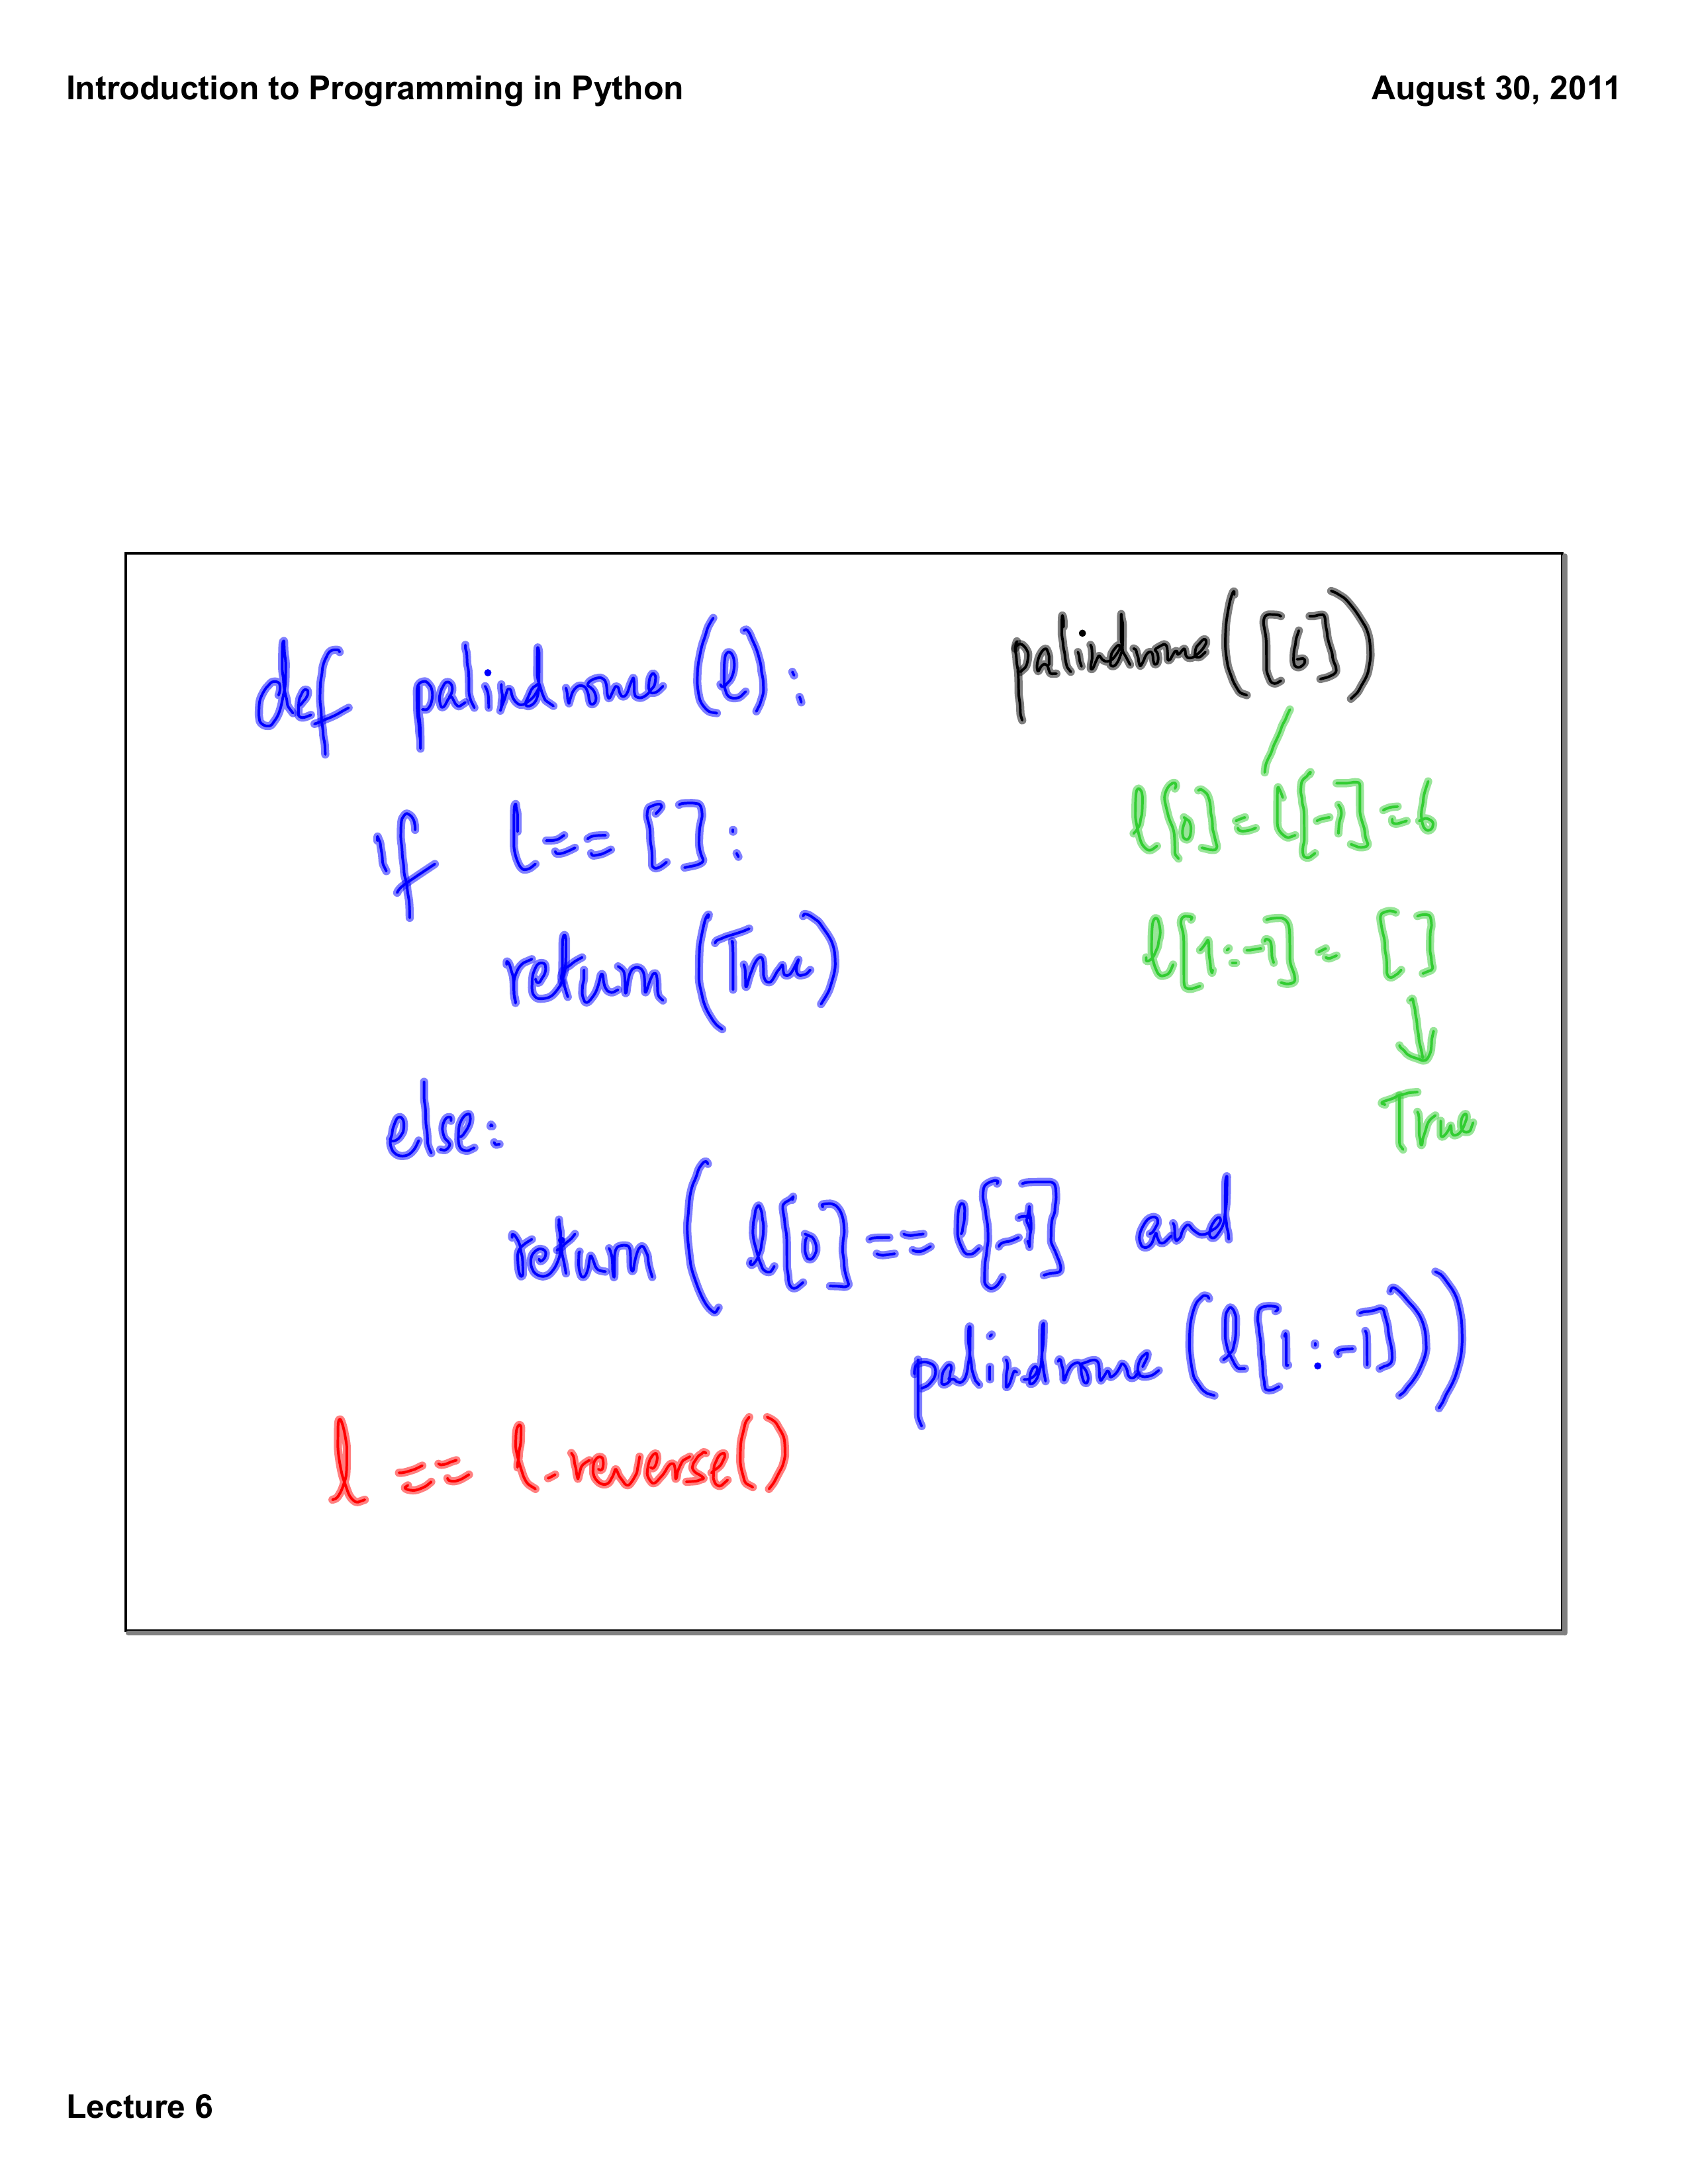 Introduction to Programming in Python
August 30, 2011
def palindrome(l):
if l == []:
return (True)
else:
return ( l[0] == l[-1] and
palindrome(l[1:-1]))
l == l.reverse()
palindrome([6])
l[0] = l[-1] = 6
l[1:-1] = []
True
Lecture 6